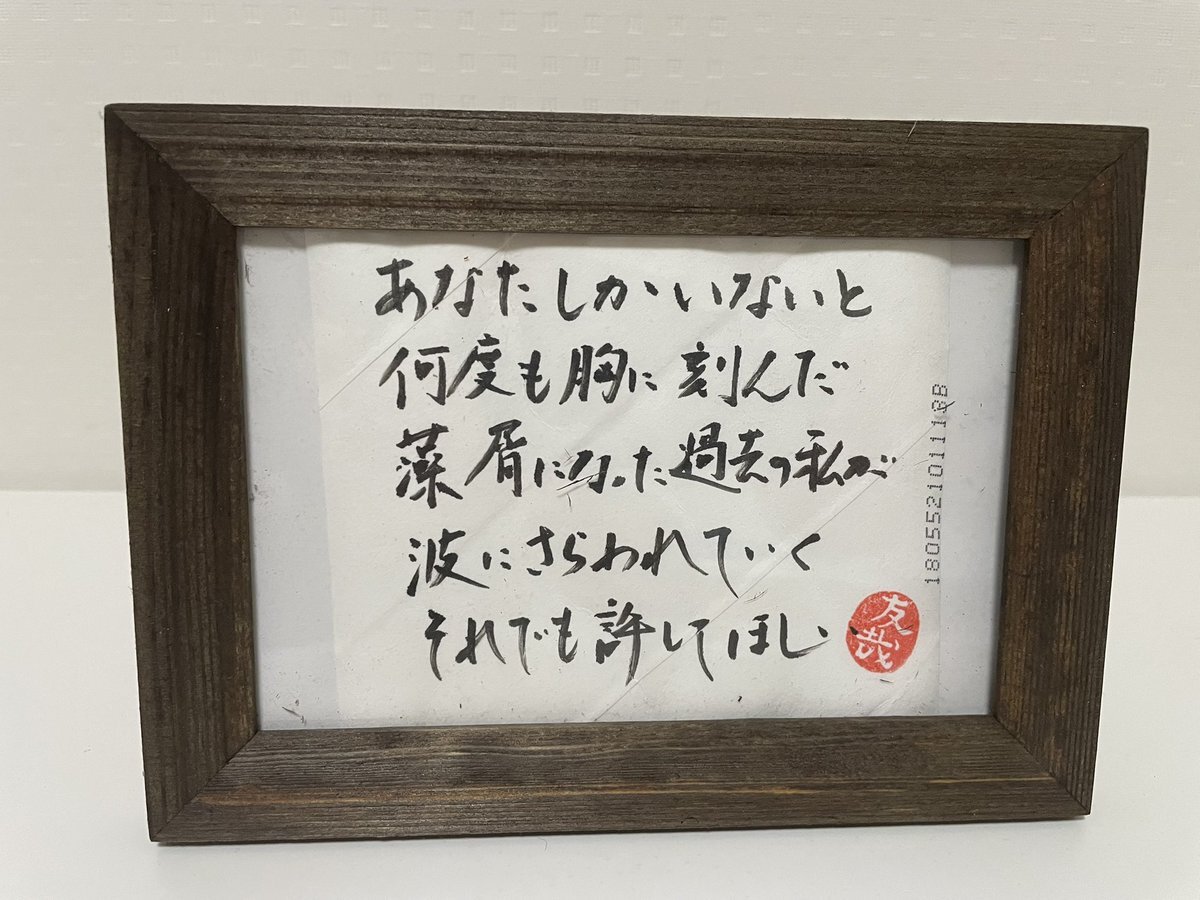 あなたしかいないと
何度も胸に刻んだ
藻屑になった過去の私が
波にさらわれていく
それでも許してほしい
友哉
180552101118B